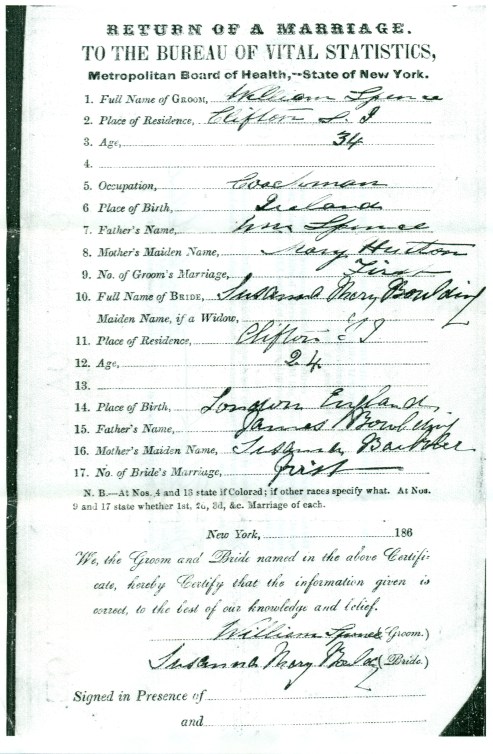 RETURN OF A MARRIAGE.
TO THE BUREAU OF VITAL STATISTICS,
Metropolitan Board of Health,--State of New York.
1. Full Name of GROOM, William Spence
2. Place of Residence, Clifton S. I
3. Age, 34
4.
5. Occupation, Coachman
6 Place of Birth, Ireland
7. Father's Name, Wm Spence
8. Mother's Maiden Name, Mary
9. No. of Groom's Marriage, First
10. Full Name of BRIDE, Susanna Mary Boulding
Maiden Name, if a Widow,
11. Place of Residence, Clifton S I
12. Age, 24
13.
14. Place of Birth, London England
15. Father's Name, James Boulding
16. Mother's Maiden Name, Susannah
17. No. of Bride's Marriage, first
N. B.—At Nos. 4 and 13 state if Colored; if other races specify what. At Nos.
9 and 17 state whether 1st, 2d, 3d, &c. Marriage of each.
New York, 186
We, the Groom and Bride named in the above Certifi-
cate, hereby Certify that the information given is
correct, to the best of our knowledge and belief.
William Spence (Groom.)
Susanna Mary (Bride.)
Signed in Presence of
and